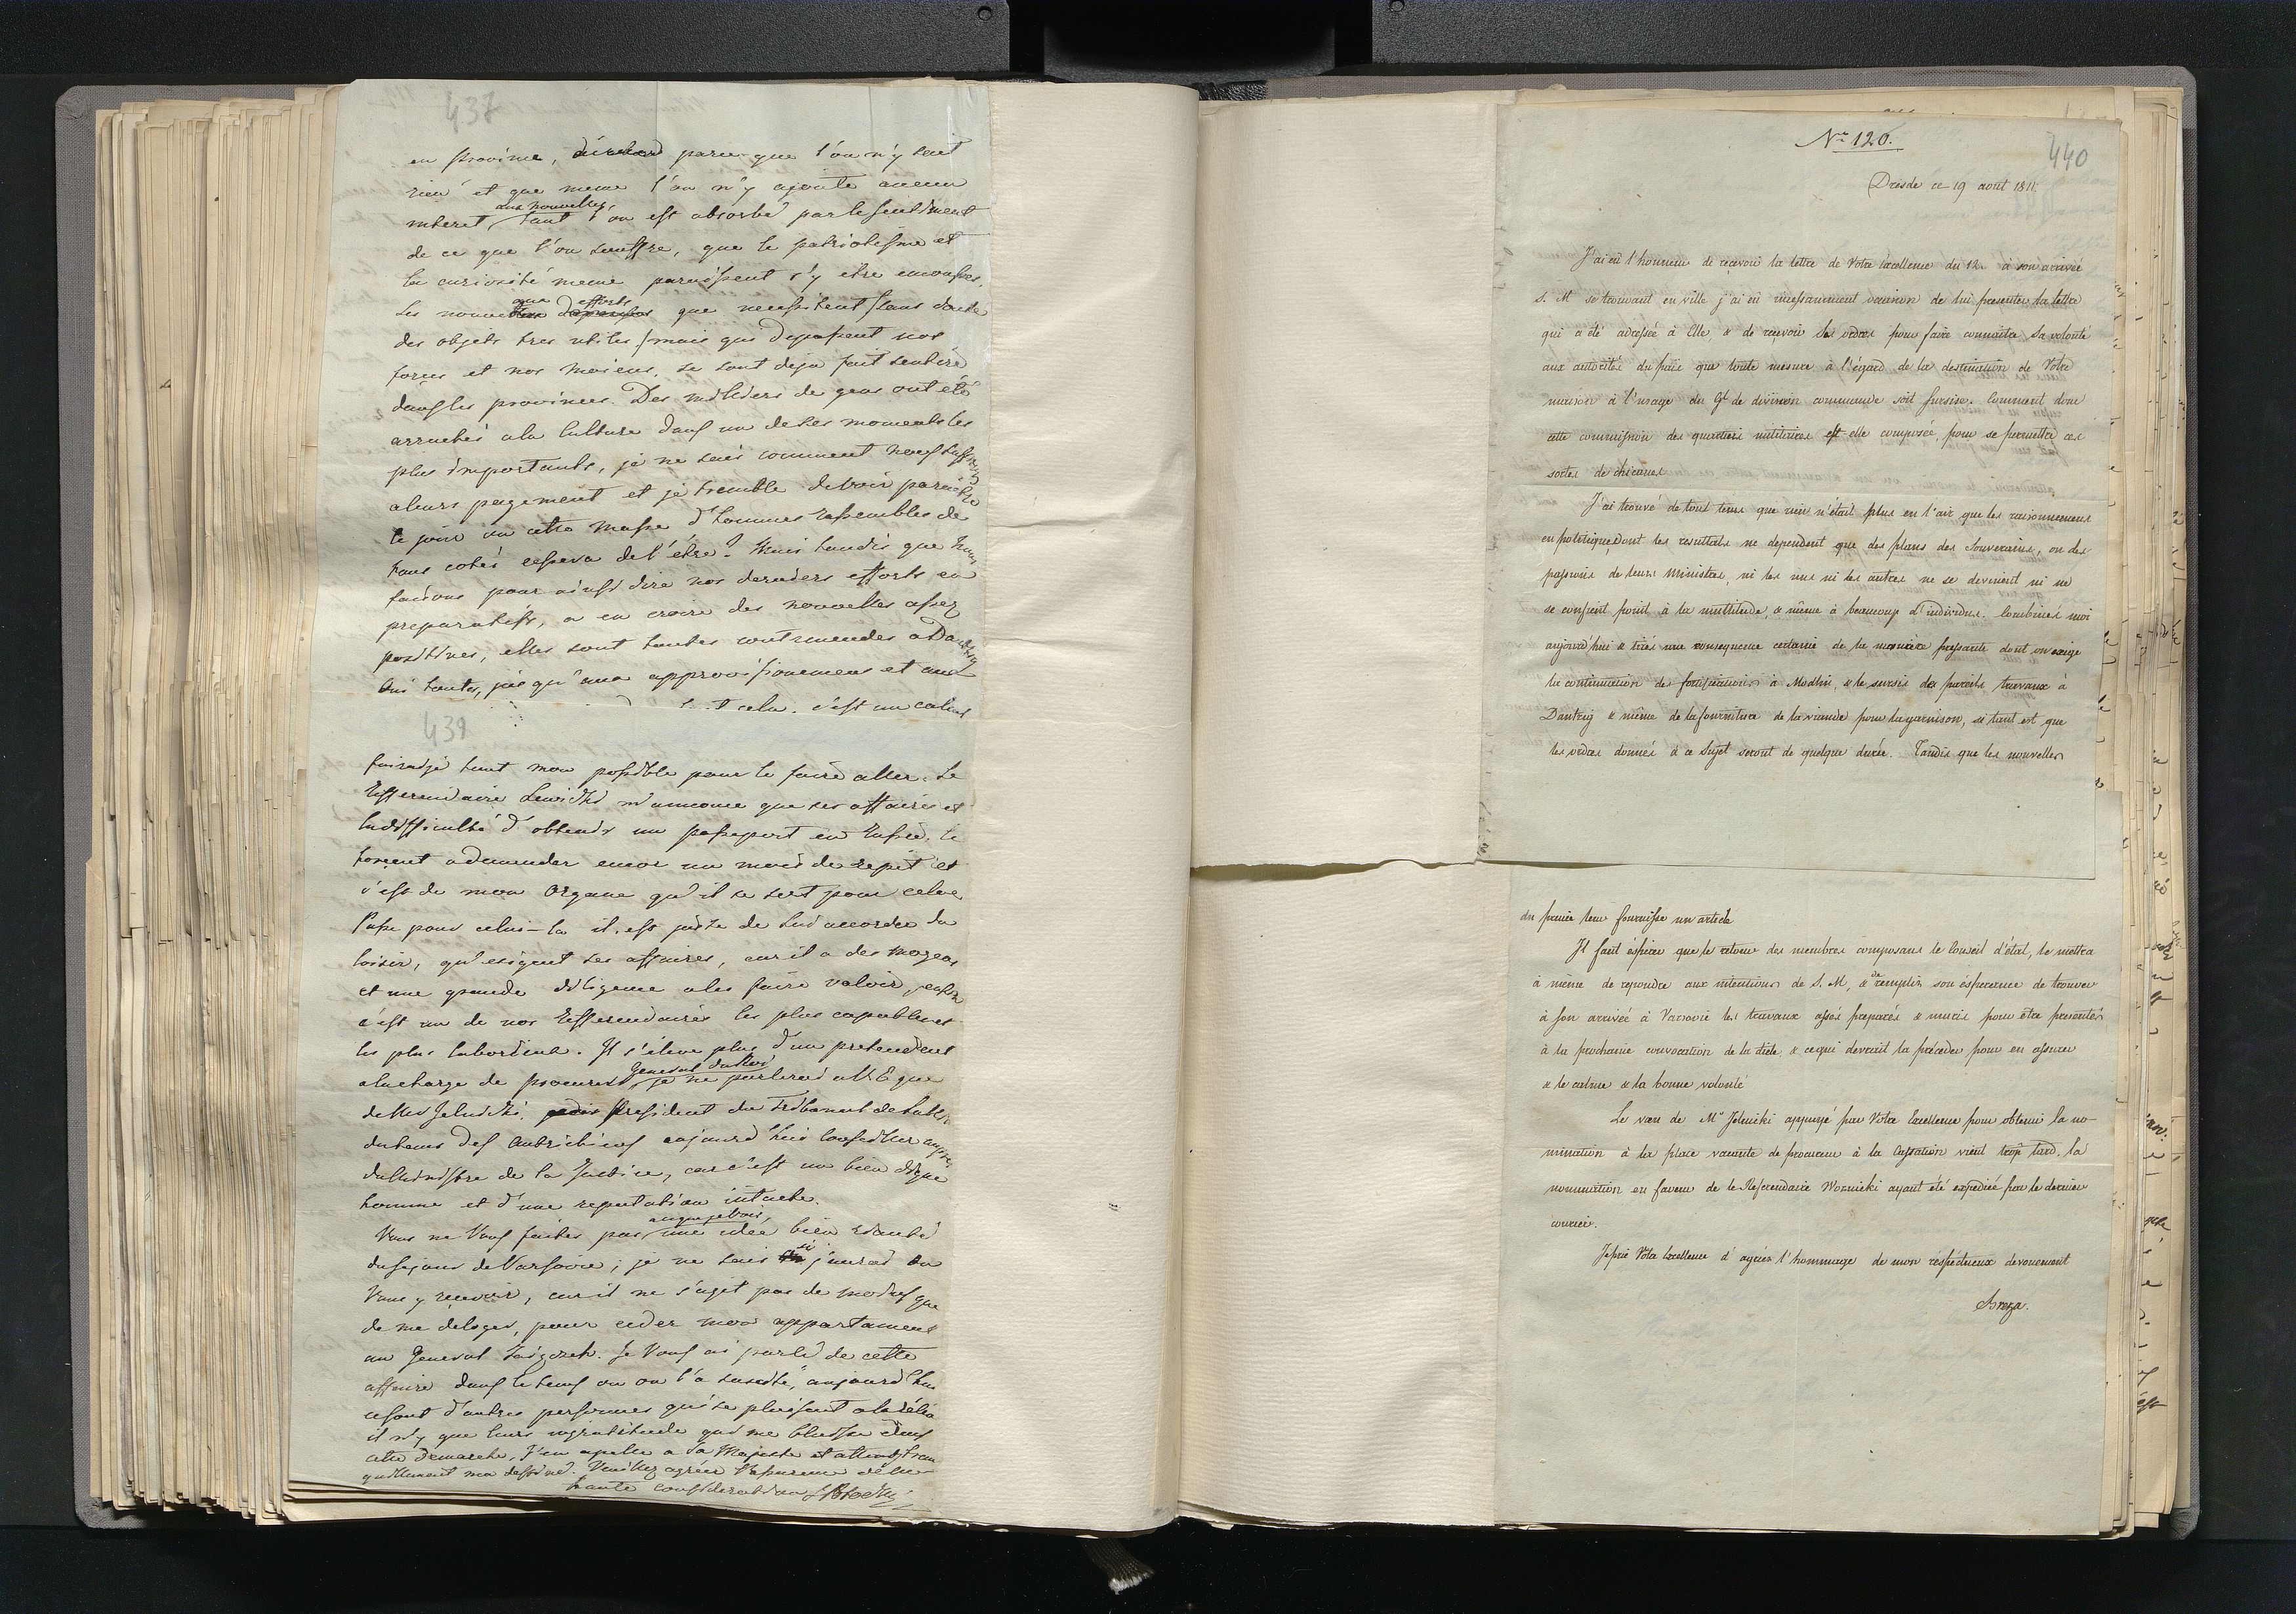 437
en province, parce que l'on n'y sent
rien et que meme l'on n'y ajoute aucun
aux nouvelles,
interet tant l'on est absorbé par le sentiment
de ce que l'on souffre, que le patriotisme et
la curiosité meme paroissent s'y etre
efforts
Les que necessitent sans doute
des objets tres utiles / mais qui depassent nos
forces et nos moiens, se sont deja fait sentire
dans les provinces. Des milliers de gens ont été
arrachés a la culture dans un de ses moments les
plus importants, je ne sais comment nous
a leurs payement et je tremble de voir paroitre
le jour ou cette masse d'hommes rassembles de
tous cotés cessera de l'être? Mais tandis que nous
faisons pour ainsi dire nos derniers efforts en
preparatifs, a en croire des nouvelles assez
positives, elles sont toutes contremendes a Danzig
Oui toutes, jusqu'aux approvisionements et
cela. c'est un
439
fairai-je tout mon possible pour le faire aller. Le
Refferendaire m'annonce que ses affaires et
la difficulté d'obtenir un passeport en Russie, le
forcent a demander encor un mois de repit et
c'est de mon Organe qu'il se sert pour cela
Passe pour celui-la il est juste de lui accorder du
loisir, qu'exigent ses affaires, car il a des moyens
et une grande diligence a les faire valoir,
c'est un de nos Refferendaires les plus capables et
les plus laborieux. Il s'éleve plus d'un pretendent
General du Roi
a la charge de procureur je ne parlerai a V.E que
de Mr president du Tribunal de
du tems des Autrichiens aujourd'hui
du Ministre de la Justice, car c'est un bien digne
homme et d'une reputation intacte.
a ce que je vois,
Vous ne Vous faites pas une idée bien riante
du sejour de Varsovie; je ne sais si j'aurai ou
Vous y recevoir, car il ne s'agit pas de moins que
de me déloger, pour ceder mon appartament
au General. Je Vous ai parlé de cette
affaire dans le tems ou on l'a suscité, aujourd'hui
ce sont d'autres personnes qui se plaisent a la
il n'y que leurs ingratitude qui me blesse dans
cette demarche, J'en apelle a Sa Majesté et attends tran
quillement ma destiné. Veuillez agréer l'assurence de la
haute consideration
Nr 120.
440
Dresde ce 19 aout 1811.
J'ai eû l'honneur de recevoir la lettre de Votre Excellence du 12. à son arrivée
S. M se trouvant en ville j'ai eû incessamment occasion de lui presenter la lettre
qui a été adressée à Elle, & de recevoir Ses ordres pour faire connaitre Sa volonté
aux autorités du païs que toute mesure à l'égard de la destination de Votre
maison à l'usage du Gl de division commande soit sursise. Comment donc
cette commission des quartiers militaires est-elle composée, pour se permettre ces
sortes de chicanes
J'ai trouvé de tout tems que rien n'était plus en l'air que les raisonnemens
en politique, dont les resultats ne dependent que des plans des Souverains, ou des
passions de leurs Ministres, ni les uns ni les autres ne se devinent ni ne
se confient point à la multitude, & même à beaucoup d'individus. Combinés moi
aujourd'hui & tirés une consequence certaine de la maniere pressante dont on exige
la continuation des fortifications à Modlin, & le sursis des pareils travaux à
Dantzig & même de la fourniture de la viande pour la garnison, si tant est que
les ordres donnés à ce sujet seront de quelque durée. Tandis que les nouvelles
du premier tems fournisse un article
Il faut espérer que le retour des membres composans le Conseil d'état, le mettra
à même de repondre aux intentions de S. M, & de remplir son ésperance de trouver
à son arrivée à Varsovie les travaux assés preparés & muris pour etre presentés
à la prochaine convocation de la diete, & ce qui devrait la préceder pour en assurer
& le calme & la bonne volonté
Le vœu de Mr appuyé par Votre Excellence pour obtenir la no-
mination à la place vacante de procureur à la Cassation vient trop tard. la
nomination en faveur de le Referendaire Woznicki ayant été expediée par le dernier
courier.
Je prie Votre Excellence d'agréer l'hommage de mon réspectueux devouement
Breza.